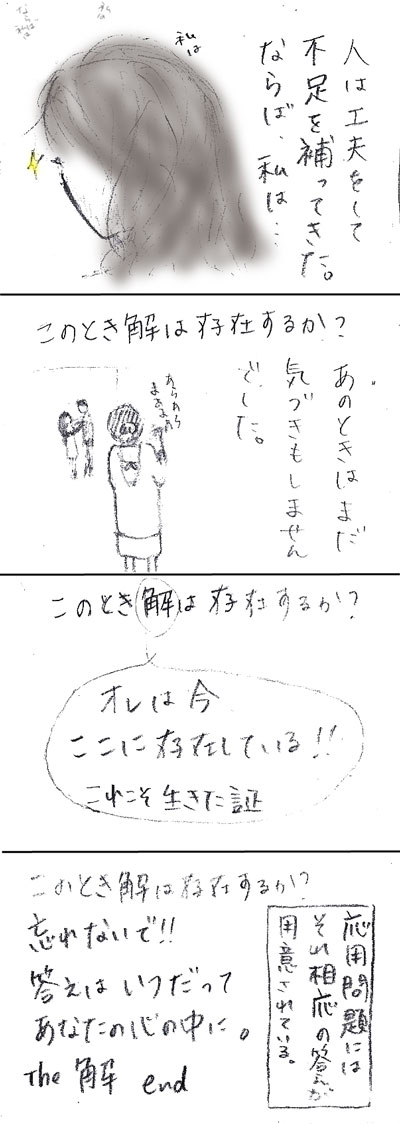 私は
人は工夫をして
不足を補ってきた。
ならば、私は…
このとき解は存在するか？
あのときはまだ
気づきもしません
でした。
あらあら
まぁまぁ
このとき解は存在するか？
オレは今
ここに存在している!!
これこそ生きた証
このとき解は存在するか？
応用問題には
それ相応の答えが
用意されている。
忘れないで!!
答えはいつだって
あなたの心の中に。
The 解 end